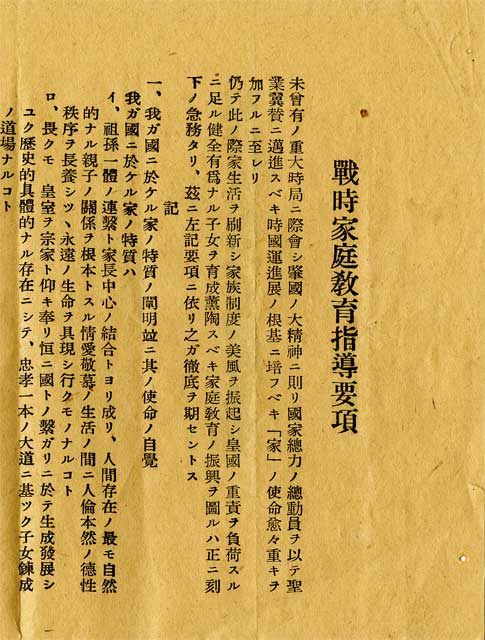 戰時家庭敎育指導要項
未曾有ノ重大時局ニ際會シ肇國ノ大精神ニ則リ國家總力ノ總動員ヲ以テ聖
業翼贊ニ邁進スベキ時國運進展ノ根基ニ培フベキ「家」ノ使命愈々重キヲ
加フルニ至レリ
仍テ此ノ際家生活ヲ刷新シ家族制度ノ美風ヲ振起シ皇國ノ重責ヲ負荷スル
ニ足ル健全有爲ナル子女ヲ育成薰陶スベキ家庭敎育ノ振興ヲ圖ルハ正ニ刻
下ノ急務タリ、玆ニ左記要項ニ依リ之ガ徹底ヲ期セントス
記
一、我ガ國ニ於ケル家ノ特質ノ闡明竝ニ其ノ使命ノ自覺
我ガ國ニ於ケル家ノ特質ハ
イ、祖孫一體ノ連繫ト家長中心ノ結合トヨリ成リ、人間存在ノ最モ自然
的ナル親子ノ關係ヲ根本トスル情愛敬慕ノ生活ノ間ニ人倫本然ノ德性
秩序ヲ長養シツヽ永遠ノ生命ヲ具現シ行クモノナルコト
ロ、畏クモ 皇室ヲ宗家ト仰キ奉リ恒ニ國トノ繫ガリニ於テ生成發展シ
ユク歷史的具體的ナル存在ニシテ、忠孝一本ノ大道ニ基ツク子女鍊成
ノ道場ナルコト